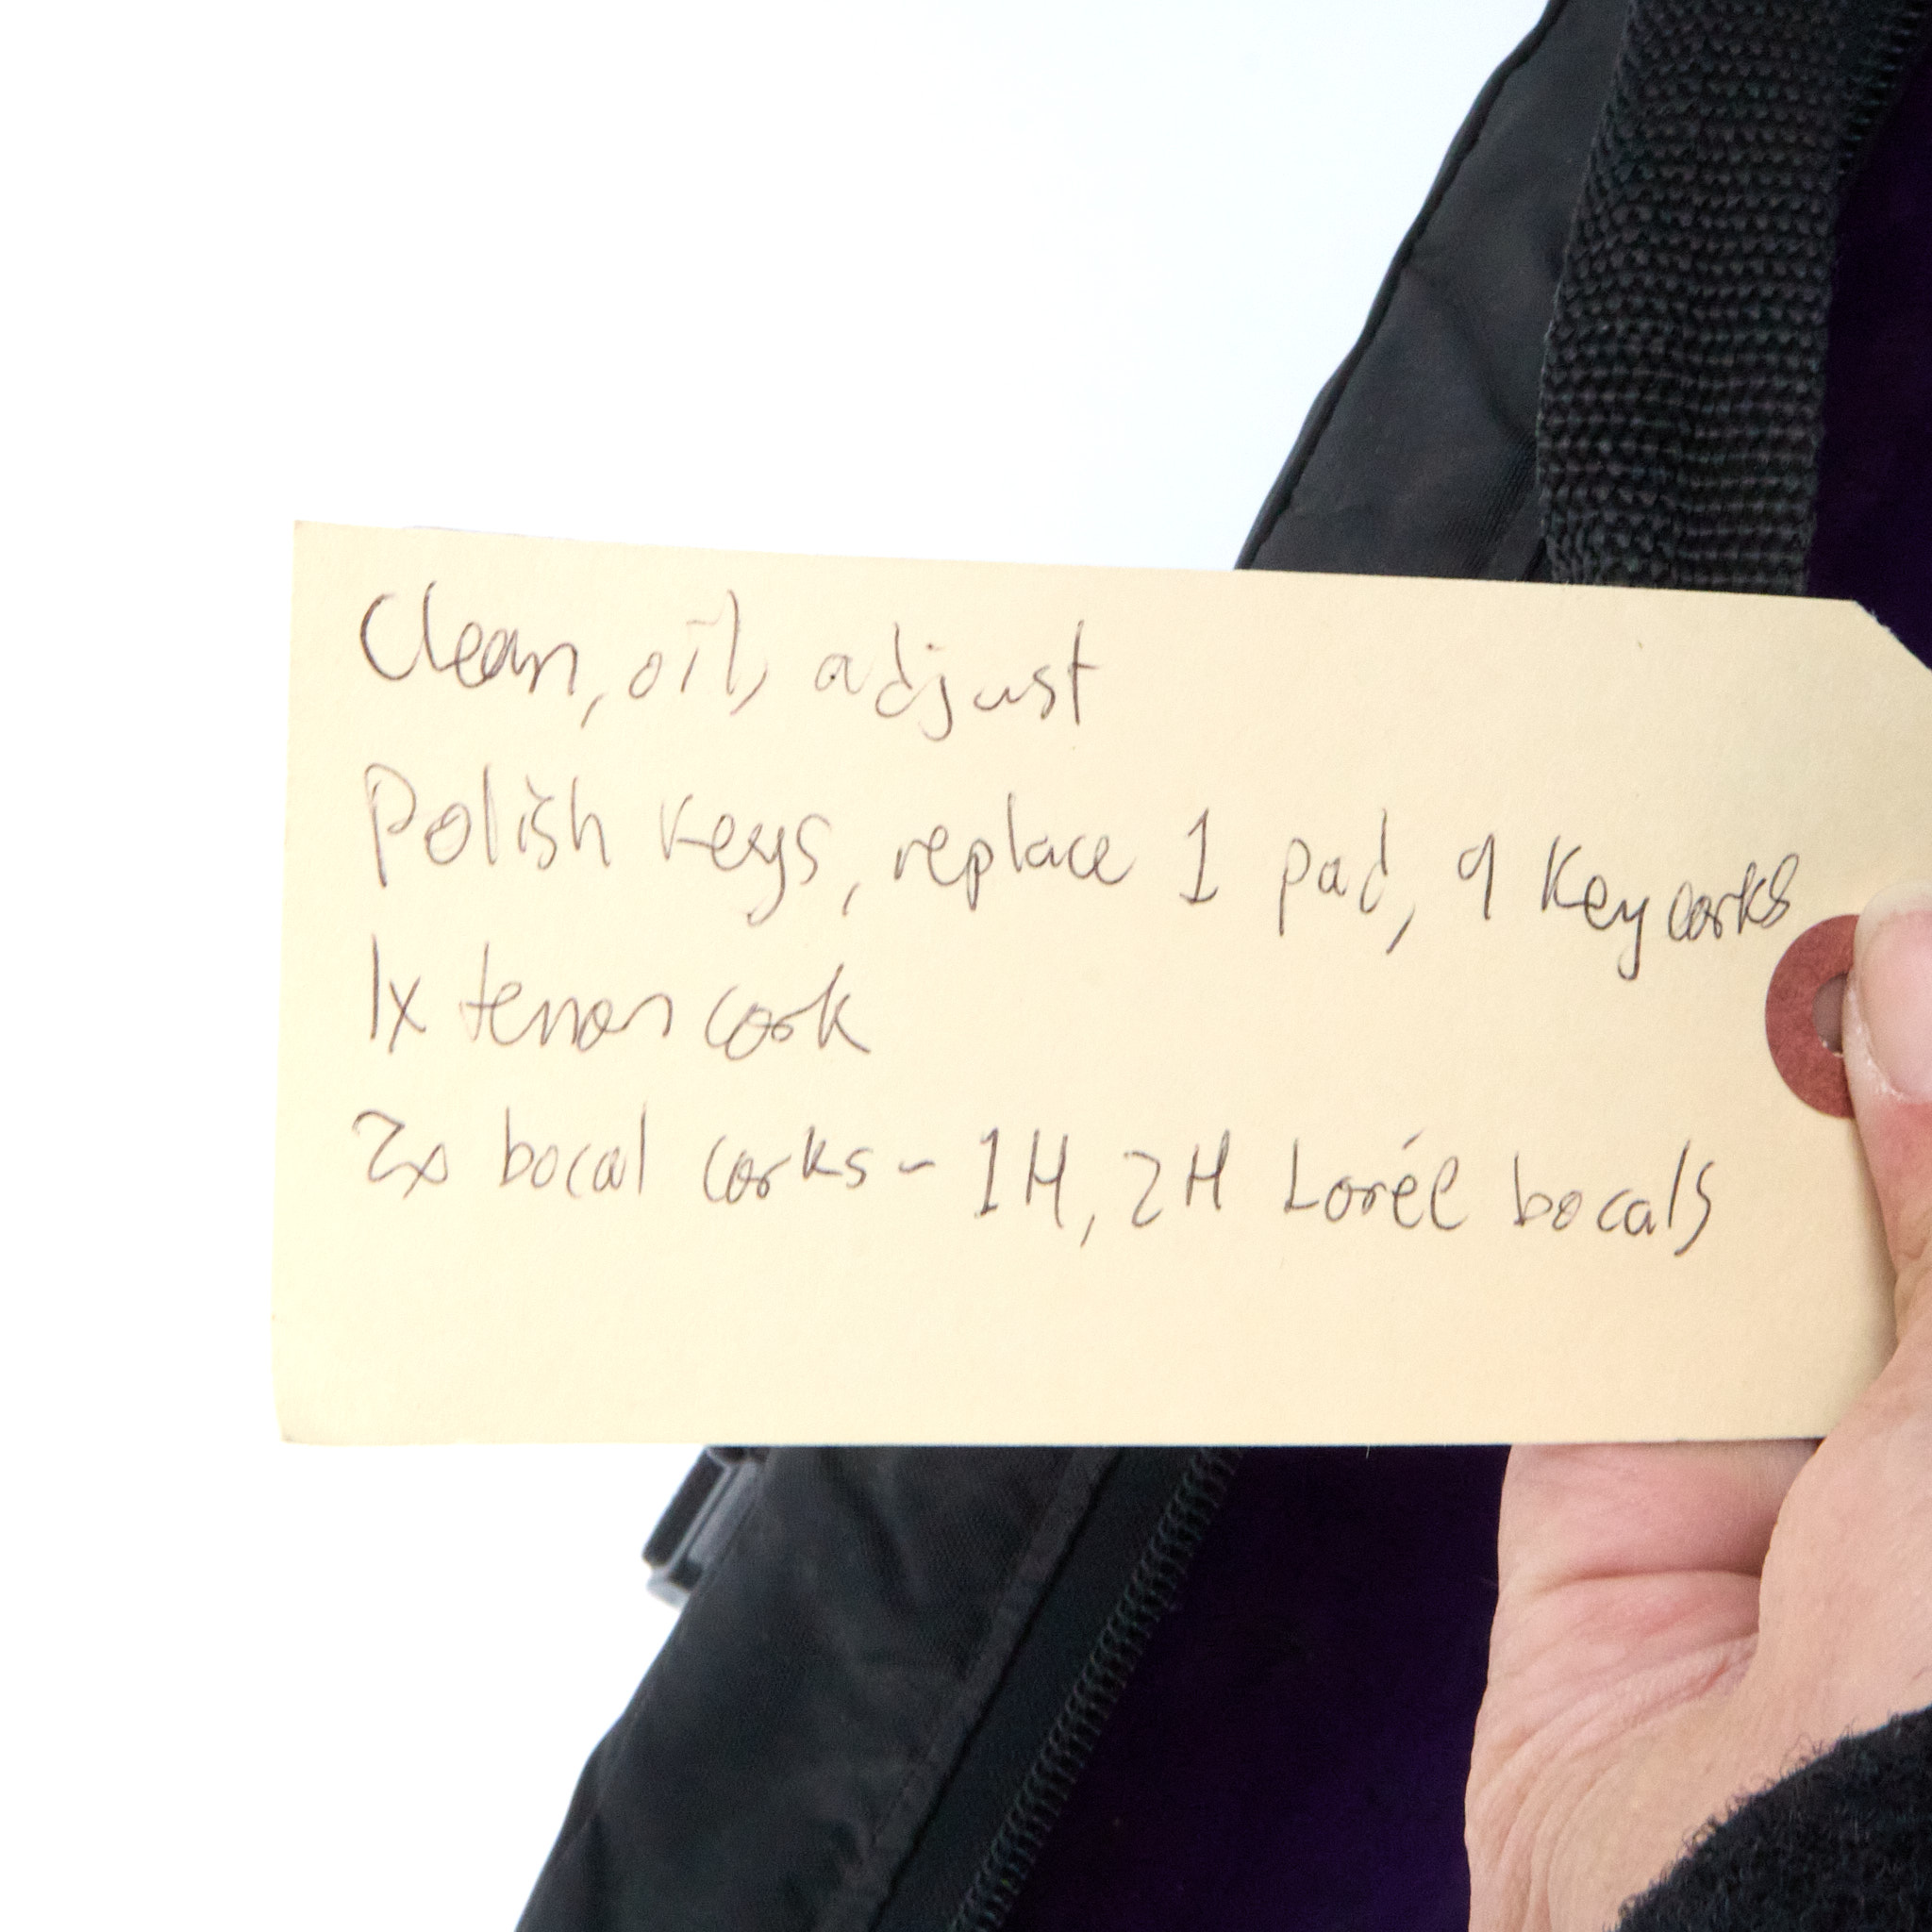 Clean, oil, adjust
Polish keys, replace 1 pad, 9 key corks
1x tenon cork
2x bocal corks - 1H, 2H Lorée bocals